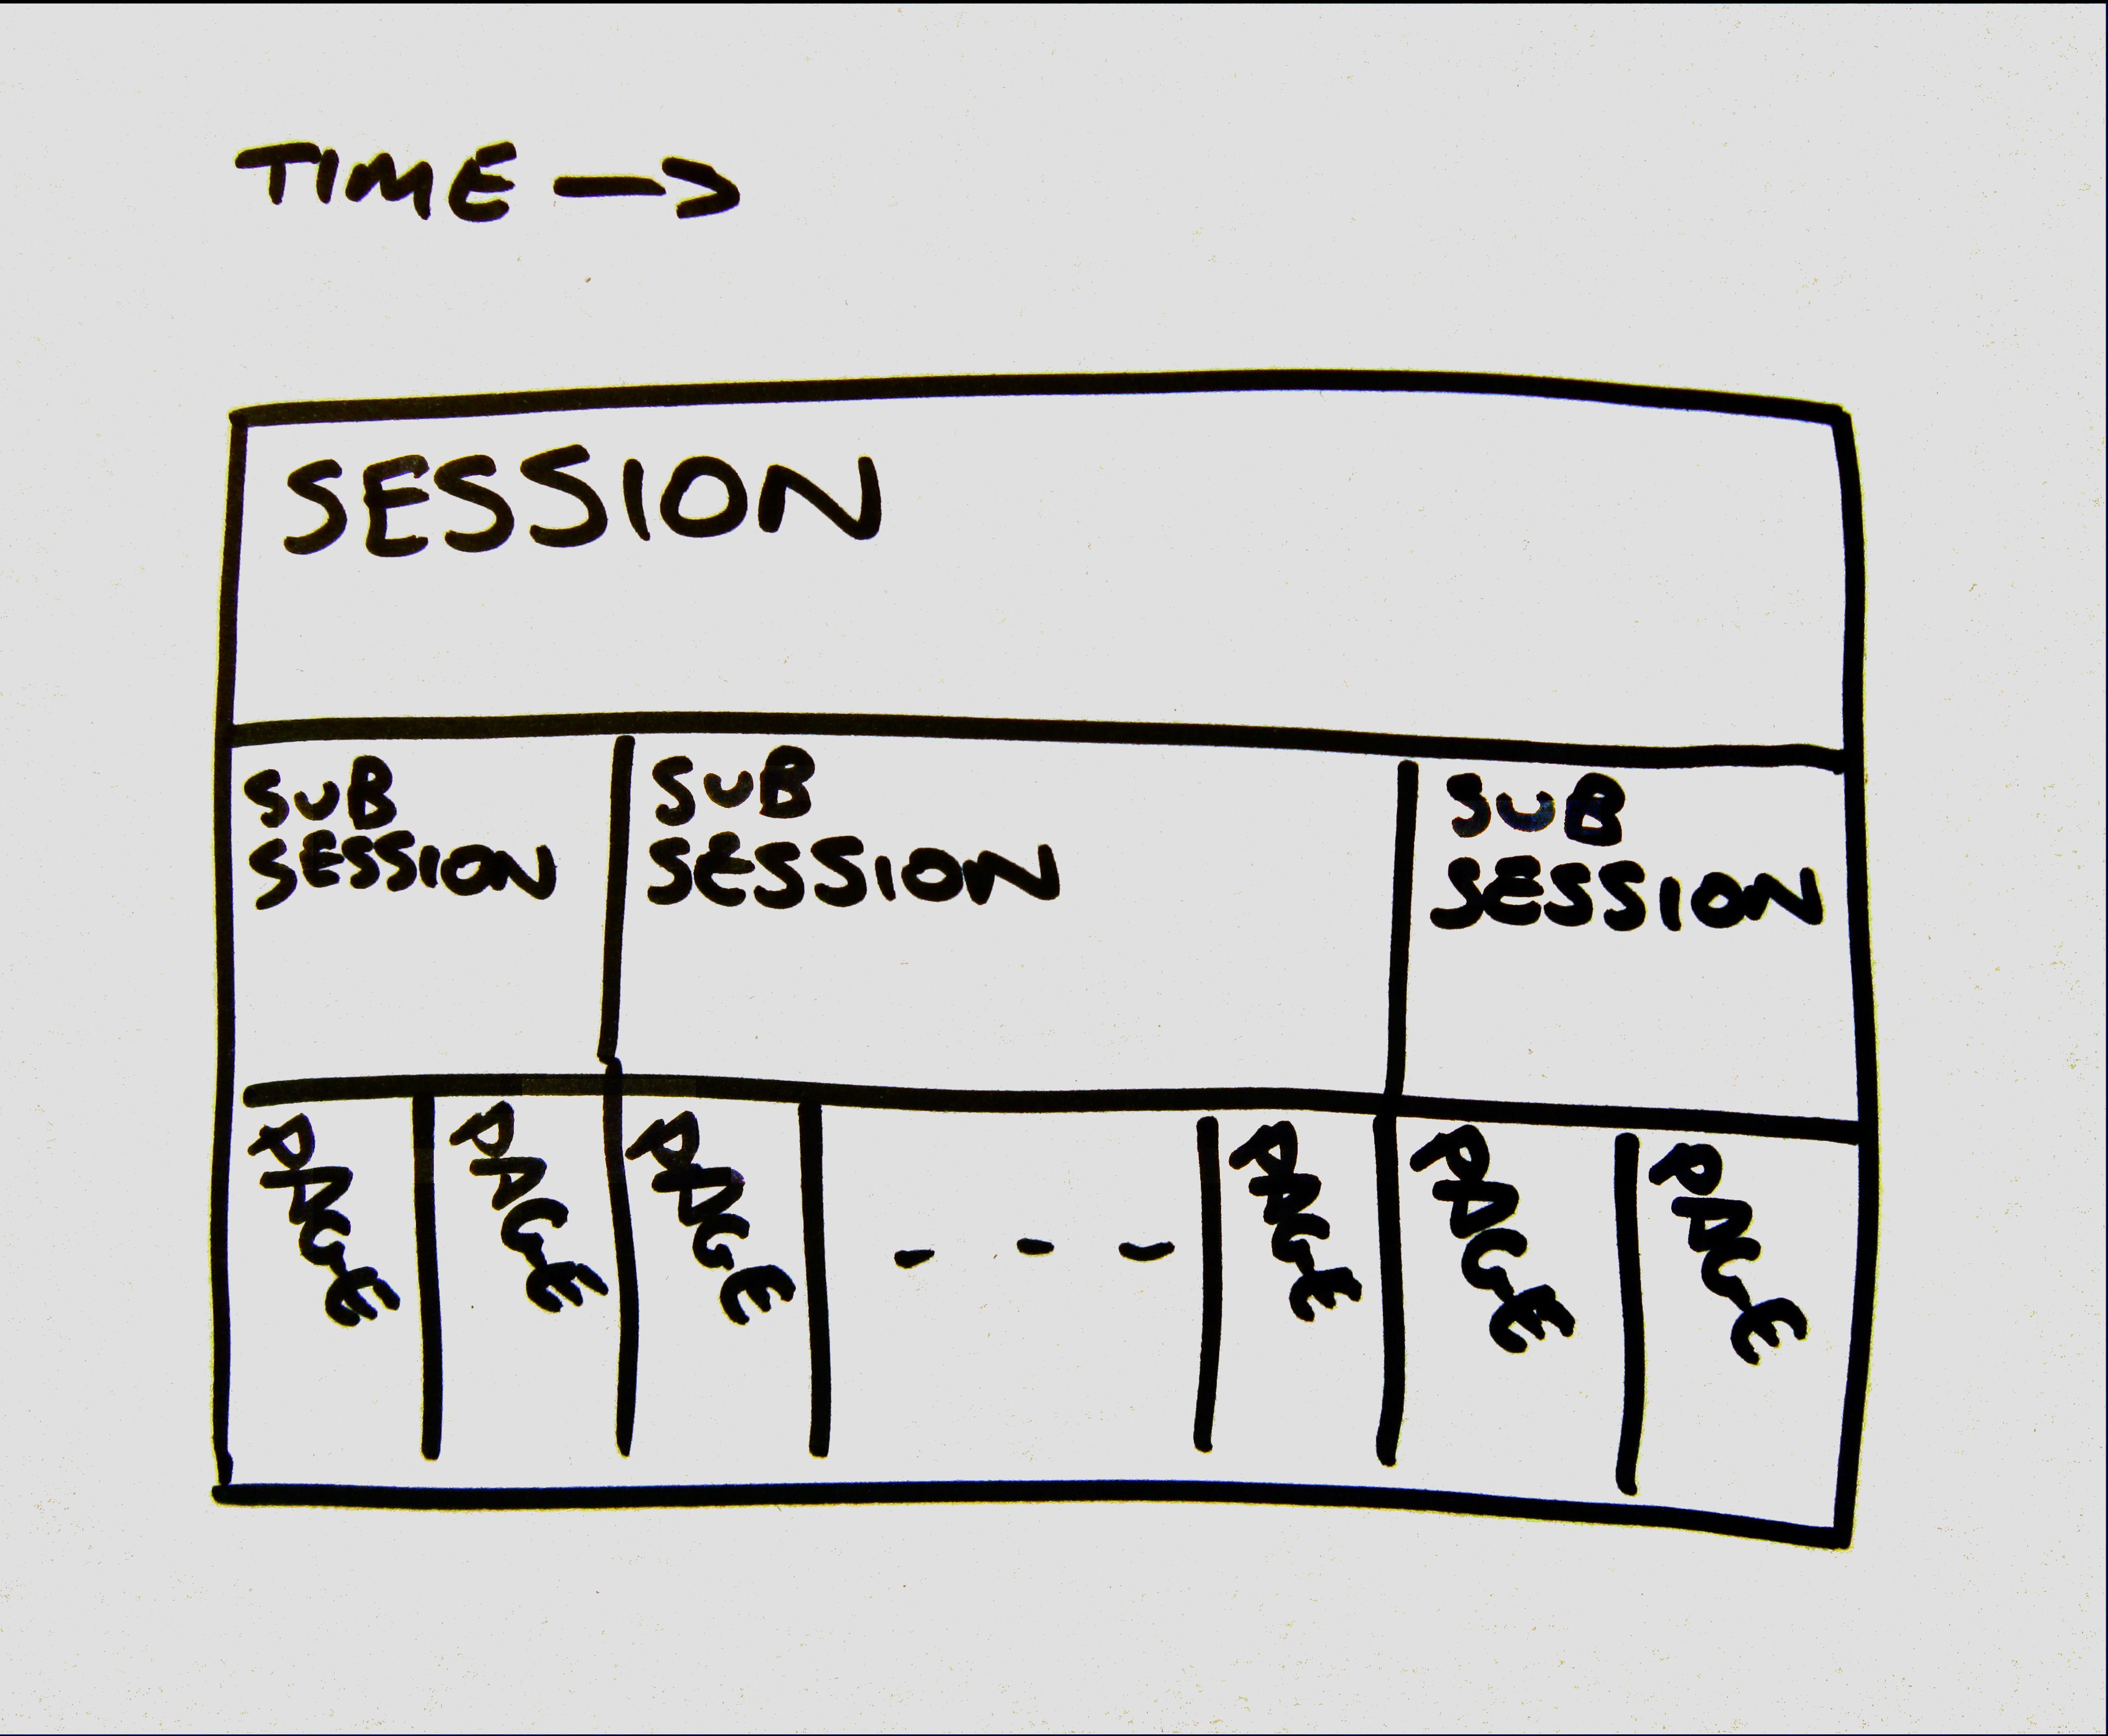 TIME —>
SESSION
SUB
SESSION
SUB
SESSION
SUB
SESSION
PAGE
PAGE
PAGE
- - -
PAGE
PAGE
PAGE